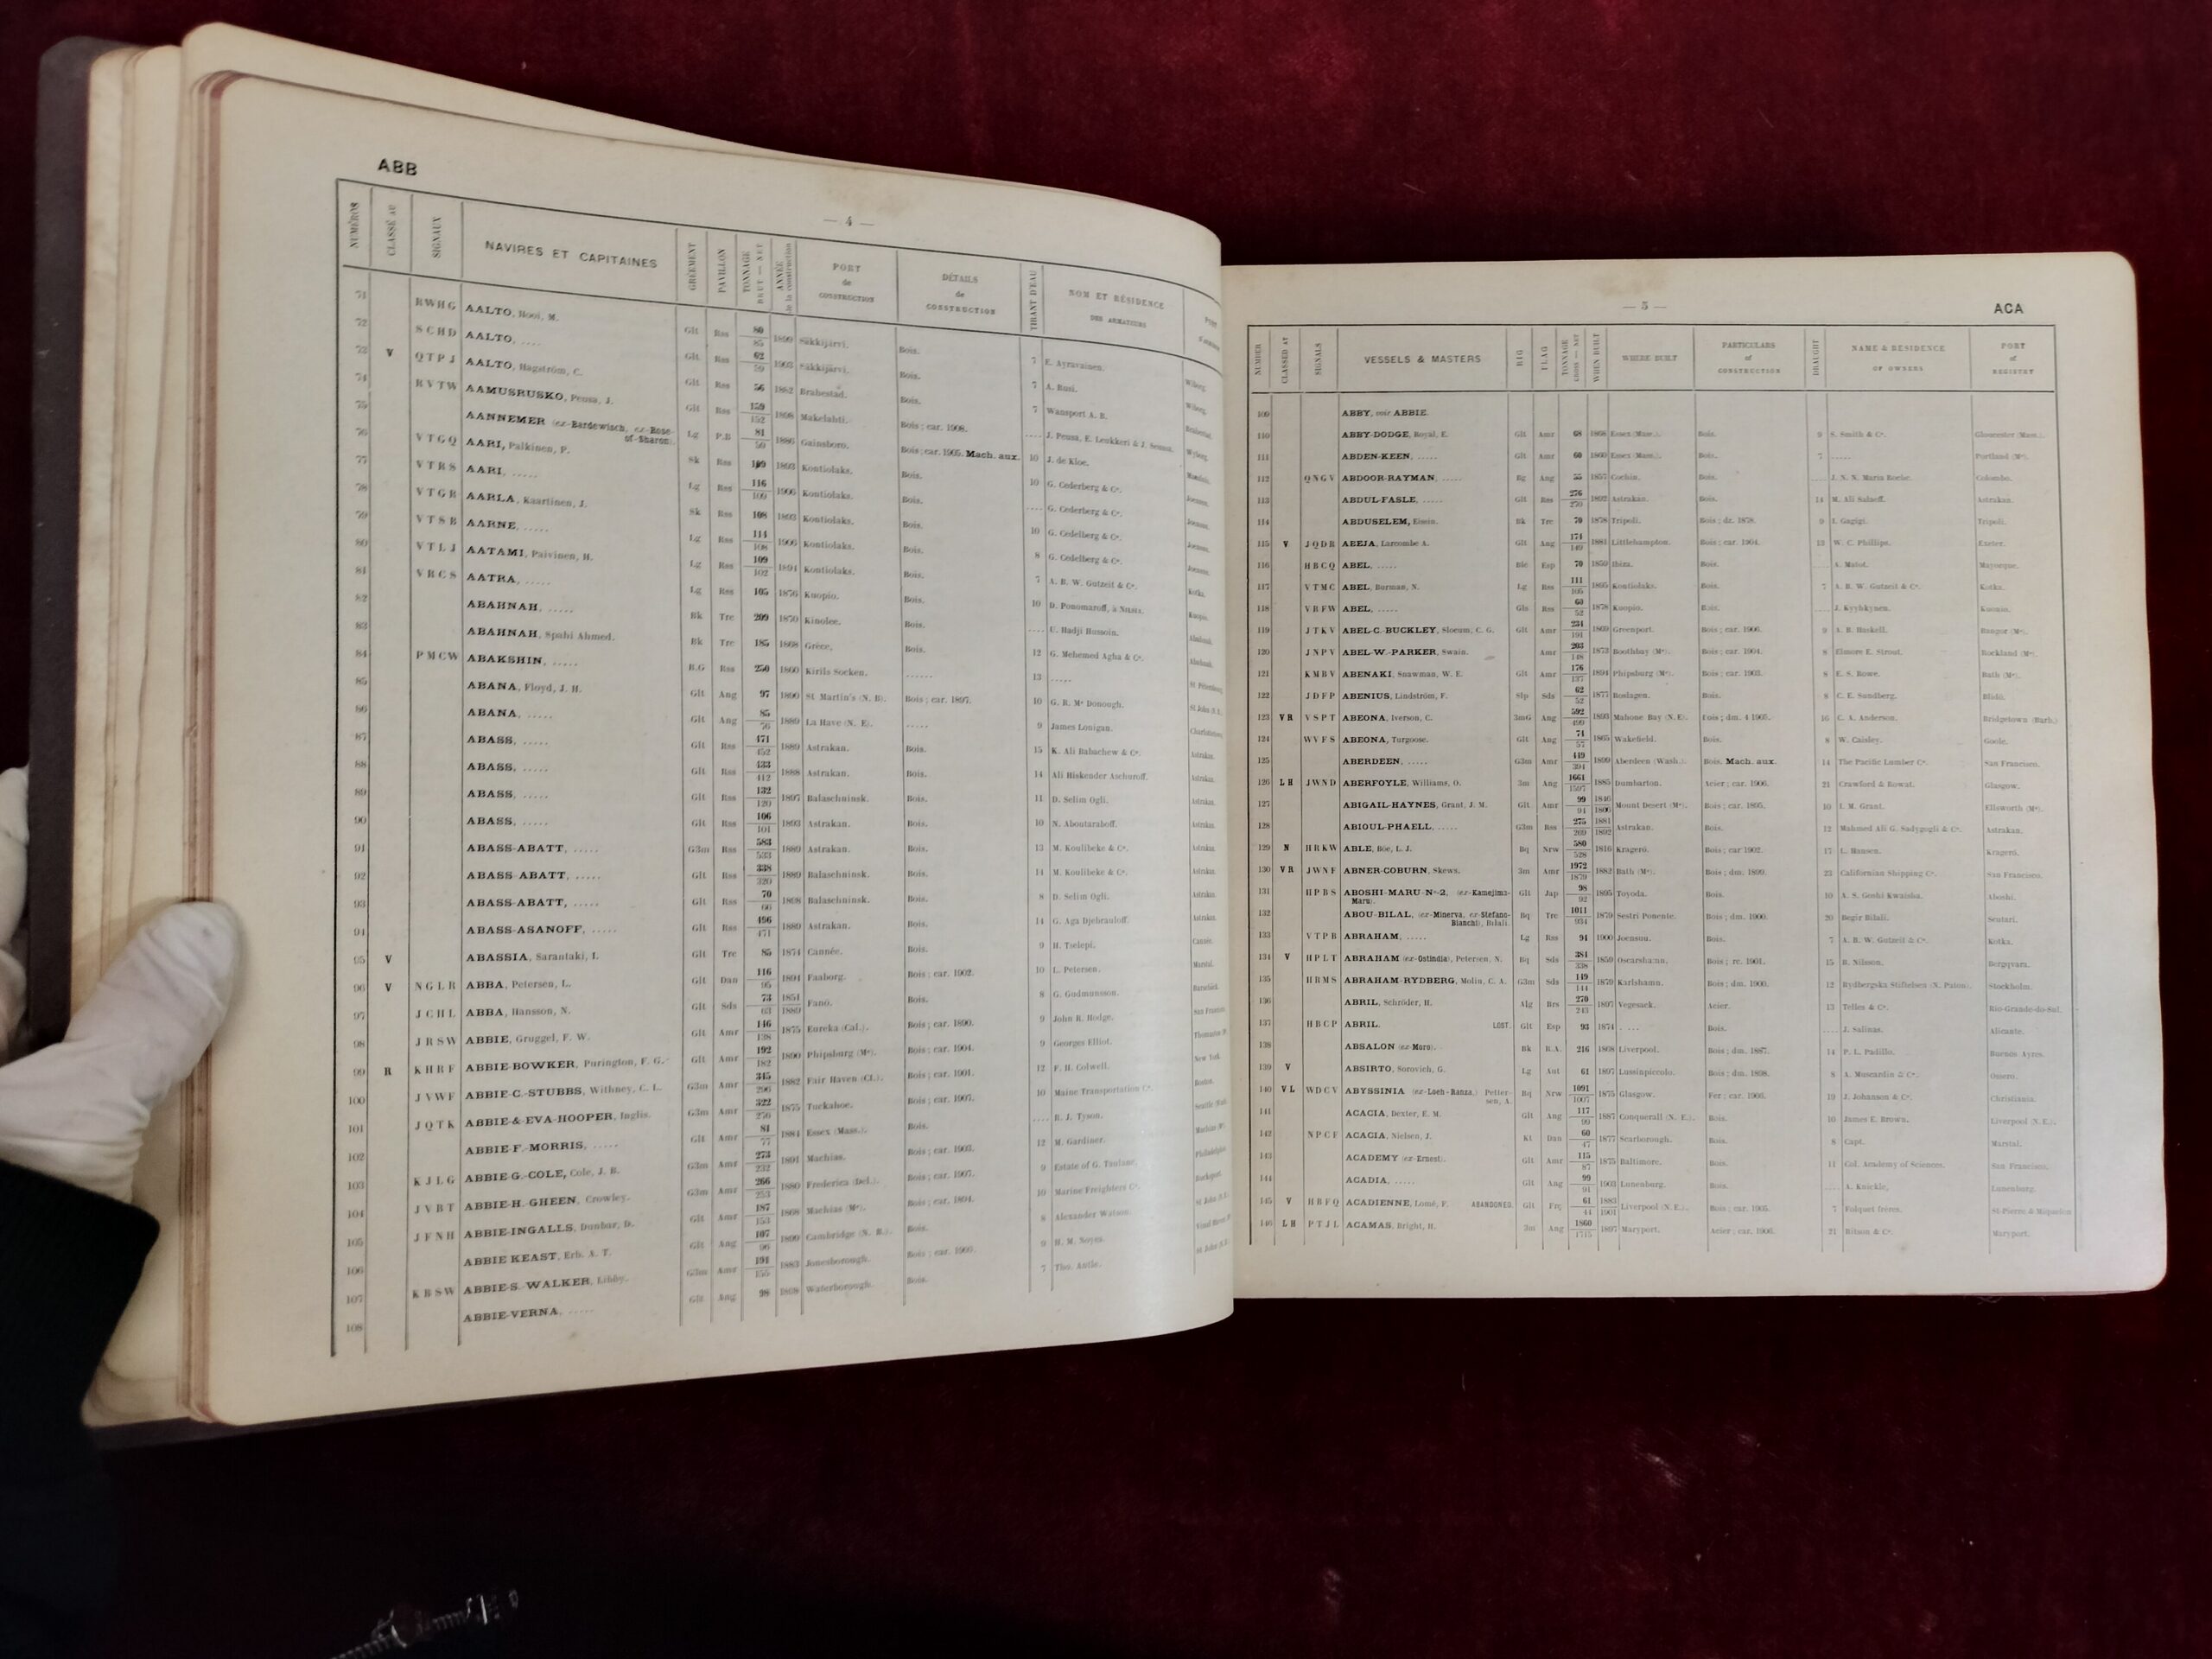 ABB
— 4 —
NUMÉROS CLASSÉ AU SIGNAUX NAVIRES ET CAPITAINES GRÉEMENT PAVILLON TONNAGE BRUT — NET ANNÉE de la construction PORT de CONSTRUCTION DÉTAILS de CONSTRUCTION TIRANT D'EAU NOM ET RÉSIDENCE DES ARMATEURS PORT
71 RWHG AALTO, Hooi, M. Glt Rss 80 85 1899 Säkkijärvi. Bois. 7 E. Ayravainen. Wiborg.
72 SCHD AALTO, .... Glt Rss 62 59 1903 Säkkijärvi. Bois. 7 A. Rusi. Wiborg.
73 V QTPJ AALTO, Hagström, C. Glt Rss 56 1882 Brahestad. Bois. 7 Wansport A. B. Brahestad.
74 RVTW AAMUSRUSKO, Peusa, J. Glt Rss 159 152 1898 Makelahti. Bois ; car. 1908. .... J. Peusa, E. Leukkeri &
75 AANNEMER (ex-Bardewisch, ex-Rose-of-Sharon). Lg P.B 81 59 1886 Gainsboro. Bois ; car. 1905. Mach. aux. 10 J. de Kloe.
76 VTGQ AARI, Palkinen, P. Sk Rss 109 1893 Kontiolaks. Bois. 10 G. Cederberg & Cº. Joensuu.
77 VTRS AARI, ..... Lg Rss 116 109 1906 Kontiolaks. Bois. .... G. Cederberg & Cº. Joensuu.
78 VTGR AARLA, Kaartinen, J. Sk Rss 108 1893 Kontiolaks. Bois. 10 G. Cedelberg & Cº. Joensuu.
79 VTSB AARNE, ..... Lg Rss 114 108 1906 Kontiolaks. Bois. 8 G. Cedelberg & Cº. Joensuu.
80 VTLJ AATAMI, Paivinen, H. Lg Rss 109 102 1894 Kontiolaks. Bois. 7 A. R. W. Gutzeit & Cº. Kotka.
81 VRCS AATRA, ..... Lg Rss 105 1876 Kuopio. Bois. 10 D. Ponomaroff, à Kuopio.
82 ABAHNAH, ..... Bk Trc 209 1870 Kinolee. Bois. .... U. Hadji Hussoin.
83 ABAHNAH, Spahi Ahmed. Bk Trc 185 1868 Grèce. Bois. 12 G. Mehemed Agha & Cº.
84 PMCW ABAKSHIN, ..... B.G Rss 250 1860 Kirils Socken. ...... 13 ..... St Petersb.
85 ABANA, Floyd, J. H. Glt Ang 97 1890 St Martin's (N. B). Bois ; car. 1897. 10 G. R. Mc Donough. St John (N.B.).
86 ABANA, ..... Glt Ang 85 76 1889 La Have (N. E). ..... 9 James Lonigan.
87 ABASS, ..... Glt Rss 471 452 1889 Astrakan. Bois. 15 K. Ali Balachew & Cº. Astrakan.
88 ABASS, ..... Glt Rss 433 412 1888 Astrakan. Bois. 14 Ali Hiskender Aschuroff. Astrakan.
89 ABASS, ..... Glt Rss 132 120 1897 Balaschninsk. Bois. 11 D. Selim Ogli. Astrakan.
90 ABASS, ..... Glt Rss 106 101 1893 Astrakan. Bois. 10 N. Aboutaraboff. Astrakan.
91 ABASS-ABATT, ..... G3m Rss 583 533 1889 Astrakan. Bois. 13 M. Koulibeke & Cº. Astrakan.
92 ABASS-ABATT, ..... Glt Rss 338 320 1889 Balaschninsk. Bois. 14 M. Koulibeke & Cº. Astrakan.
93 ABASS-ABATT, ..... Glt Rss 70 66 1898 Balaschninsk. Bois. 8 D. Selim Ogli. Astrakan.
94 ABASS-ASANOFF, ..... Glt Rss 496 471 1889 Astrakan. Bois. 14 G. Aga Djebrauloff. Astrakan.
95 V ABASSIA, Sarantaki, I. Glt Trc 85 1874 Cannée. Bois. 9 H. Tselepi. Cannée.
96 V NGLR ABBA, Petersen, L. Glt Dan 116 95 1894 Faaborg. Bois ; car. 1902. 10 L. Petersen. Marstal.
97 JCHL ABBA, Hansson, N. Glt Sds 73 63 1851 1889 Fanö. Bois. 8 G. Gudmunsson.
98 JRSW ABBIE, Gruggel, F. W. Glt Amr 146 138 1875 Eureka (Cal.). Bois ; car. 1890. 9 John R. Hodge. San Francisco
99 R KHRF ABBIE-BOWKER, Purington, F. G. Glt Amr 192 182 1890 Phipsburg (Me). Bois ; car. 1904. 9 Georges Elliot.
100 JVWF ABBIE-C.-STUBBS, Withney, C. L. G3m Amr 345 296 1882 Fair Haven (Ct.). Bois ; car. 1901. 12 F. H. Colwell. New York
101 JQTK ABBIE-&-EVA-HOOPER, Inglis. G3m Amr 322 276 1875 Tuckahoe. Bois ; car. 1907. 10 Maine Transportation Cº. Boston.
102 ABBIE-F-MORRIS, ..... Glt Amr 81 77 1884 Essex (Mass.). Bois. .... R. J. Tyson.
103 KJLG ABBIE-G.-COLE, Cole, J. B. G3m Amr 273 232 1891 Machias. Bois ; car. 1903. 12 M. Gardiner.
104 JVBT ABBIE-H.-GHEEN, Crowley. G3m Amr 266 253 1880 Frederica (Del.). Bois ; car. 1907. 9 Estate of G. Taulane. Philadelphie
105 JFNH ABBIE-INGALLS, Dunbar, D. Glt Amr 187 153 1868 Machias (Me). Bois ; car. 1894. 10 Marine Freighters Cº.
106 ABBIE KEAST, Erb. A. T. Glt Ang 107 96 1899 Cambridge (N. B.). Bois. 8 Alexander Watson. St John (N.B.)
107 KBSW ABBIE-S.-WALKER, Libby. G3m Amr 191 155 1883 Jonesborough. Bois ; car. 1900. 9 H. M. Noyes.
108 ABBIE-VERNA, ..... Glt Ang 98 1868 Waterborough. Bois. 7 Tho. Astle. St John (N.B.)
— 5 —
ACA
NUMBER CLASSED AT SIGNALS VESSELS & MASTERS RIG FLAG TONNAGE GROSS — NET WHEN BUILT WHERE BUILT PARTICULARS of CONSTRUCTION DRAUGHT NAME & RESIDENCE OF OWNERS PORT of REGISTRY
109 ABBY, voir ABBIE.
110 ABBY-DODGE, Royal, E. Glt Amr 68 1868 Essex (Mass.). Bois. 9 S. Smith & Cº. Gloucester (Mass.).
111 ABDEN-KEEN, ..... Glt Amr 60 1860 Essex (Mass.). Bois. 7 ..... Portland (Me).
112 QNGV ABDOOR-RAYMAN, ..... Bg Ang 55 1857 Cochin. Bois. .... J. N. N. Maria Borhe. Colombo.
113 ABDUL-FASLE, ..... Glt Rss 276 270 1892 Astrakan. Bois. 14 M. Ali Salaeff. Astrakan.
114 ABDUSELEM, Eissin. Bk Trc 70 1878 Tripoli. Bois ; dz. 1878. 9 I. Gagigi. Tripoli.
115 V JQDR ABEJA, Larcombe A. Glt Ang 174 149 1881 Littlehampton. Bois ; car. 1904. 13 W. C. Phillips. Exeter.
116 HBCQ ABEL, ..... Bic Esp 70 1859 Ibiza. Bois. .... A. Matot. Mayorque.
117 VTMC ABEL, Burman, N. Lg Rss 111 105 1895 Kontiolaks. Bois. 7 A. R. W. Gutzeit & Cº. Kotka.
118 VRFW ABEL, ..... Gls Rss 60 52 1878 Kuopio. Bois. .... J. Kyyhkynen. Kuopio.
119 JTKV ABEL-C.-BUCKLEY, Slocum, C. G. Glt Amr 234 191 1869 Greenport. Bois ; car. 1906. 9 A. B. Haskell. Bangor (Me).
120 JNPV ABEL-W.-PARKER, Swain. Amr 203 148 1873 Boothbay (Me). Bois ; car. 1904. 8 Elmore E. Strout. Rockland (Me).
121 KMBV ABENAKI, Snawman, W. E. Glt Amr 176 137 1894 Phipsburg (Me). Bois ; car. 1903. 8 E. S. Rowe. Bath (Me).
122 JDFP ABENIUS, Lindström, F. Slp Sds 62 52 1877 Roslagen. Bois. 8 C. E. Sundberg. Blidö.
123 VR VSPT ABEONA, Iverson, C. 3mG Ang 592 499 1893 Mahone Bay (N. E). Bois ; dm. 4 1905. 16 C. A. Anderson. Bridgetown (Barb.)
124 WVFS ABEONA, Turgoose. Glt Ang 71 57 1865 Wakefield. Bois. 8 W. Caisley. Goole.
125 ABERDEEN, ..... G3m Amr 449 394 1899 Aberdeen (Wash.). Bois. Mach. aux. 14 The Pacific Lumber Cº. San Francisco.
126 LH JWND ABERFOYLE, Williams, O. 3m Ang 1661 1597 1885 Dumbarton. Acier ; car. 1906. 21 Crawford & Rowat. Glasgow.
127 ABIGAIL-HAYNES, Grant, J. M. Glt Amr 99 94 1846 1866 Mount Desert (Me). Bois ; car. 1895. 10 I. M. Grant. Ellsworth (Me).
128 ABIOUL-PHAELL, ..... G3m Rss 275 269 1881 1892 Astrakan. Bois. 12 Mahmed Ali G. Sadygogli & Cº. Astrakan.
129 N HRKW ABLE, Böe, L. J. Bq Nrw 580 528 1816 Krageró. Bois ; car 1902. 17 L. Hansen. Krageró.
130 VR JWNF ABNER-COBURN, Skews. 3m Amr 1972 1879 1882 Bath (Me). Bois ; dm. 1899. 23 Californian Shipping Cº. San Francisco.
131 HPBS ABOSHI-MARU-Nº-2, (ex-Kamejima-Maru). Glt Jap 98 92 1895 Toyoda. Bois. 10 A. S. Goshi Kwaisha. Aboshi.
132 ABOU-BILAL, (ex-Minerva, ex-Stefano-Bianchi), Bilali. Bq Trc 1011 934 1879 Sestri Ponente. Bois ; dm. 1900. 20 Begir Bilali. Scutari.
133 VTPB ABRAHAM, ..... Lg Rss 94 1900 Joensuu. Bois. 7 A. R. W. Gutzeit & Cº. Kotka.
134 V HPLT ABRAHAM (ex-Ostindia), Petersen, N. Bq Sds 384 338 1859 Oscarshamn. Bois ; rc. 1901. 15 B. Nilsson. Bergqvara.
135 HBMS ABRAHAM-RYDBERG, Molin, C. A. G3m Sds 149 144 1879 Karlshamn. Bois ; dm. 1900. 12 Rydbergska Stiftelsen (N. Paton). Stockholm.
136 ABRIL, Schröder, H. Alg Brs 270 243 1897 Vegesack. Acier. 13 Telles & Cº. Rio-Grande-do-Sul.
137 HBCP ABRIL. LOST. Glt Esp 93 1874 .... Bois. .... J. Salinas. Alicante.
138 ABSALON (ex-Moro). Bk R.A. 216 1868 Liverpool. Bois ; dm. 1887. 14 P. L. Padillo. Buenos Ayres.
139 V ABSIRTO, Sorovich, G. Lg Aut 61 1897 Lussinpiccolo. Bois ; dm. 1898. 8 A. Muscardin & Cº. Ossero.
140 VL WDCV ABYSSINIA (ex-Loch-Ranza.) Pettersen, A. Bq Nrw 1091 1007 1875 Glasgow. Fer ; car. 1908. 19 J. Johanson & Cº. Christiania.
141 ACACIA, Dexter, E. M. Glt Ang 117 99 1887 Conquerall (N. E.). Bois. 10 James E. Brown. Liverpool (N. E.).
142 NPCF ACACIA, Nielsen, J. Kt Dan 60 47 1877 Scarborough. Bois. 8 Capt. Marstal.
143 ACADEMY (ex-Ernest). Glt Amr 115 87 1875 Baltimore. Bois. 11 Col. Academy of Sciences. San Francisco.
144 ACADIA, ..... Glt Ang 99 91 1903 Lunenburg. Bois. .... A. Knickle. Lunenburg.
145 V HBFQ ACADIENNE, Lomé, F. ABANDONED. Glt Frç 61 44 1883 1901 Liverpool (N. E.). Bois ; car. 1905. 7 Folquet frères. St-Pierre & Miquelon
146 LH PTJL ACAMAS, Bright, H. 3m Ang 1860 1715 1897 Maryport. Acier ; car. 1906. 21 Ritson & Cº. Maryport.